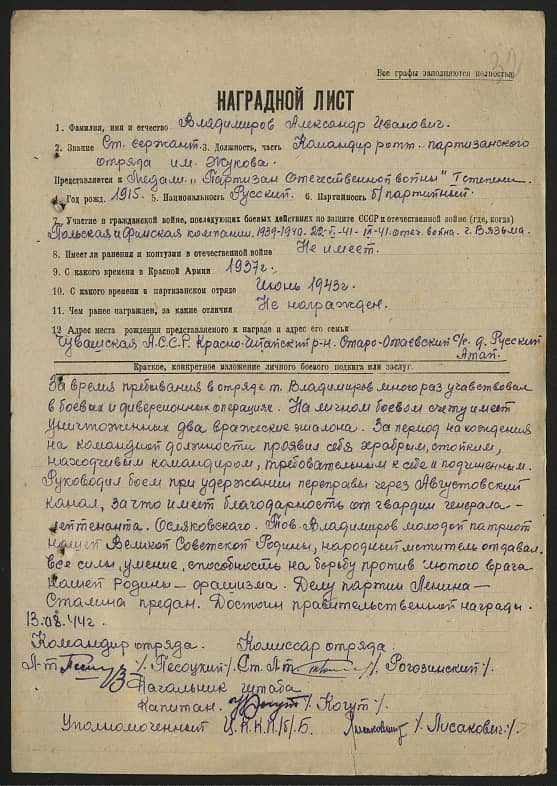 32
Все графы заполняются полностью
НАГРАДНОЙ ЛИСТ
1. Фамилия, имя и отчество Владимиров Александр Иванович.
2. Звание Ст. сержант. 3. Должность, часть Командир роты партизанского
отряда им. Жукова.
Представляется к Медали „Партизан Отечественной войны" I степени.
4. Год рожд. 1915. 5. Национальность Русский. 6. Партийность б/партийный.
7. Участие в гражданской войне, последующих боевых действиях по защите СССР и отечественной войне (где, когда)
Польская и Финская компании. 1939-1940. 22-VI-41 - IX-41. отеч. война. г. Вязьма.
8. Имеет ли ранения и контузии в отечественной войне Не имеет.
9. С какого времени в Красной Армии 1937г.
10. С какого времени в партизанском отряде Июнь 1943г.
11. Чем ранее награжден, за какие отличия Не награжден.
12 Адрес места рождения представляемого к награде и адрес его семьи
Чувашская А.С.С.Р. Красно-Чтайский р-н. Старо-Отаевский с/с. д. Русский
Атай.
Краткое, конкретное изложение личного боевого подвига или заслуг.
За время пребывания в отряде т. Владимиров много раз учавствовал
в боевых и диверсионных операциях. На личном боевом счету имеет
уничтоженных два вражеские эшалона. За период нахождения
на командной должности проявил себя храбрым, стойким,
находчивым командиром, требовательным к себе и подчиненным.
Руководил боем при удержании переправы через Августовский
канал, за что имеет благодарность от гвардии генерала-
лейтенанта. Осляковского. Тов. Владимиров молодой патриот
нашей Великой Советской Родины, народный мститель отдавал
все силы, умение, способность на борьбу против лютого врага
нашей Родины – фашизма. Делу партии Ленина –
Сталина предан. Достоин правительственной награды.
13.08.44г.
Командир отряда. Комиссар отряда.
Л-т /. Песоцкий ./. Ст. Л-т /. Рогозинский ./.
Начальник штаба
Капитан. /. Когут ./.
Уполномоченный Ц.К.К.П./б/.Б. Лисакович /. Лисакович ./.